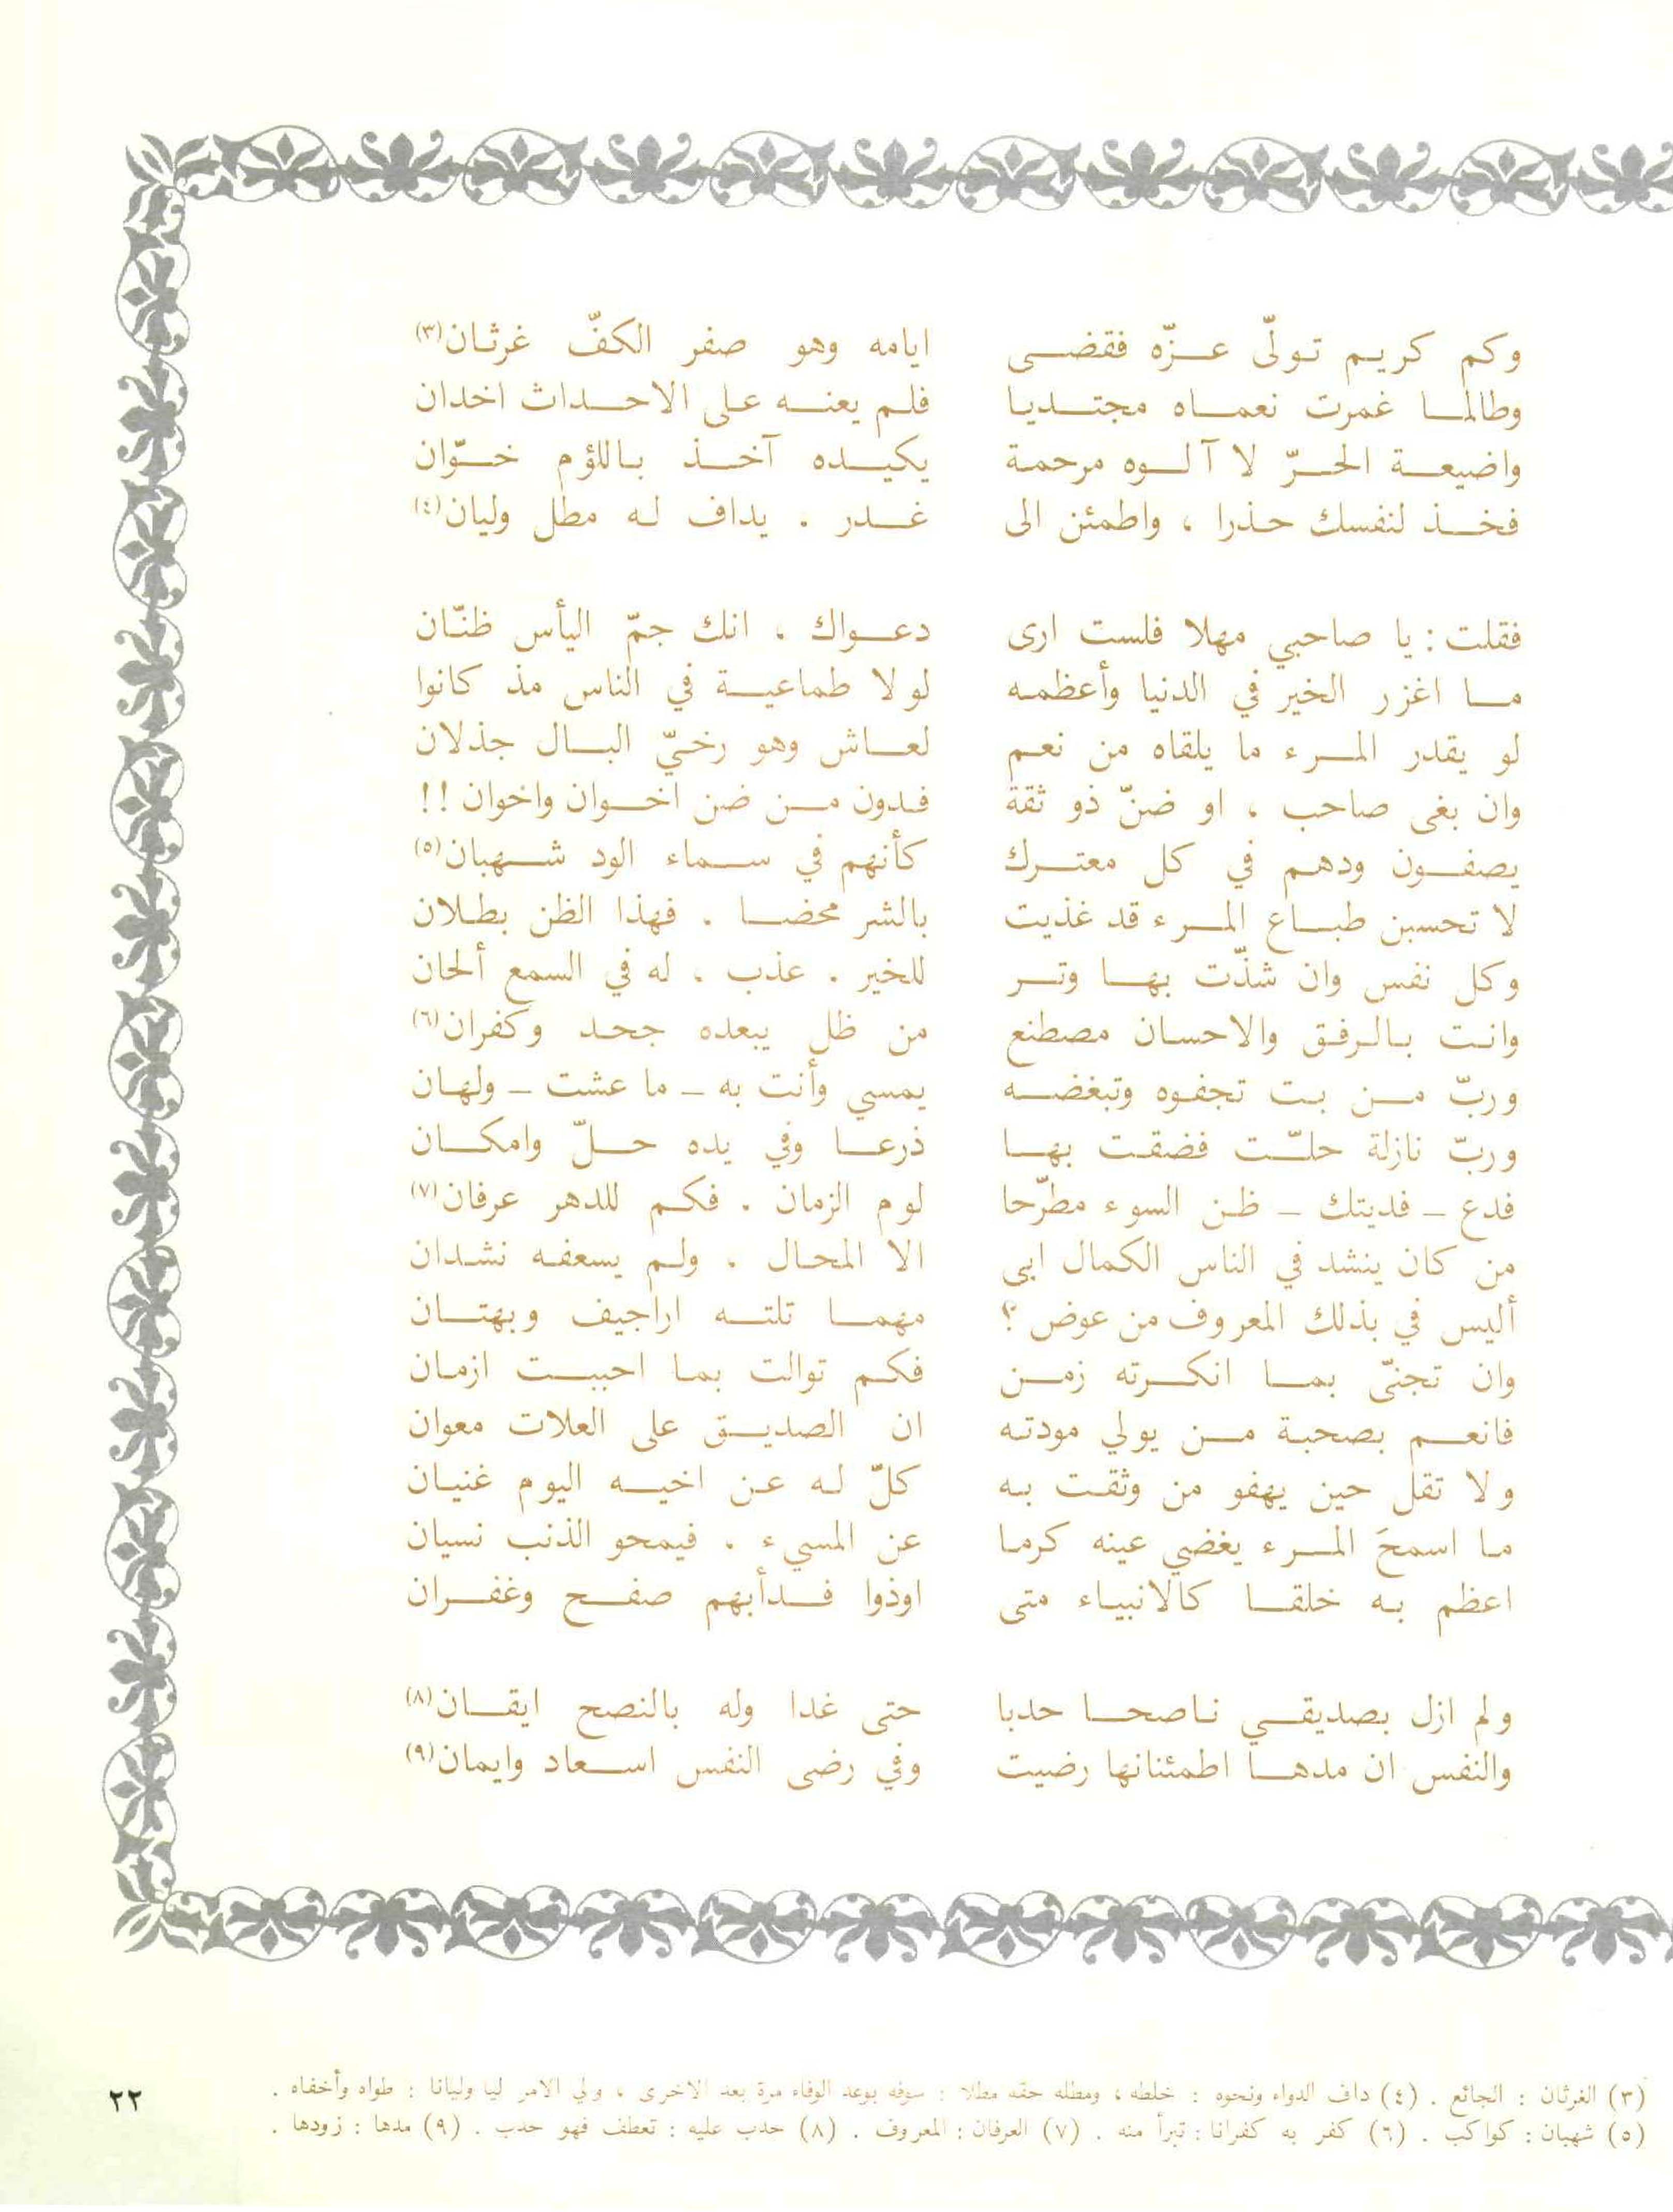 وكم كريم تولّى عزّه فقضى ايامه وهو صفر الكفّ غرثان(٣)
وطالما غمرت نعماه مجتديا فلم يعنه على الاحداث اخدان
واضيعة الحرّ لا آلوه مرحمة يكيده آخذ باللؤم خوّان
فخذ لنفسك حذرا ، واطمئن الى غدر . يداف له مطل وليان(٤)
فقلت : يا صاحبي مهلا فلست ارى دعواك ، انك جمّ اليأس ظنّان
ما اغزر الخير في الدنيا وأعظمه لولا طماعية في الناس مذ كانوا
لو يقدر المرء ما يلقاه من نعم لعاش وهو رخيّ البال جذلان
وان بغى صاحب ، او ضنّ ذو ثقة فدون من ضن اخوان واخوان !!
يصفون ودهم في كل معترك كأنهم في سماء الود شهبان(٥)
لا تحسبن طباع المرء قد غذيت بالشر محضا . فهذا الظن بطلان
وكل نفس وان شذّت بها وتر للخير . عذب ، له في السمع ألحان
وانت بالرفق والاحسان مصطنع من ظل يبعده جحد وكفران(٦)
وربّ من بت تجفوه وتبغضه يمسي وأنت به – ما عشت – ولهان
وربّ نازلة حلّت فضقت بها ذرعا وفي يده حلّ وامكان
فدع – فديتك – ظن السوء مطرّحا لوم الزمان . فكم للدهر عرفان(٧)
من كان ينشد في الناس الكمال ابى الا المحال ، ولم يسعفه نشدان
أليس في بذلك المعروف من عوض ؟ مهما تلته اراجيف وبهتان
وان تجنّى بما انكرته زمن فكم توالت بما احببت ازمان
فانعم بصحبة من يولي مودته ان الصديق على العلات معوان
ولا تقل حين يهفو من وثقت به كلّ له عن اخيه اليوم غنيان
ما اسمحَ المرء يغضي عينه كرما عن المسيء . فيمحو الذنب نسيان
اعظم به خلقا كالانبياء متى اوذوا فدأبهم صفح وغفران
ولم ازل بصديقي ناصحا حدبا حتى غدا وله بالنصح ايقان(٨)
والنفس ان مدها اطمئنانها رضيت وفي رضى النفس اسعاد وايمان(٩)
(٣) الغرثان : الجائع . (٤) داف الدواء ونحوه : خلطه ، ومطله حقه مطلا : سوفه بوعد الوفاء مرة بعد الاخرى ، ولي الامر ليا وليانا : طواه وأخفاه .
(٥) شهبان : كواكب . (٦) كفر به كفرانا : تبرأ منه . (٧) العرفان : المعروف . (٨) حدب عليه : تعطف فهو حدب . (٩) مدها : زودها .
٢٢